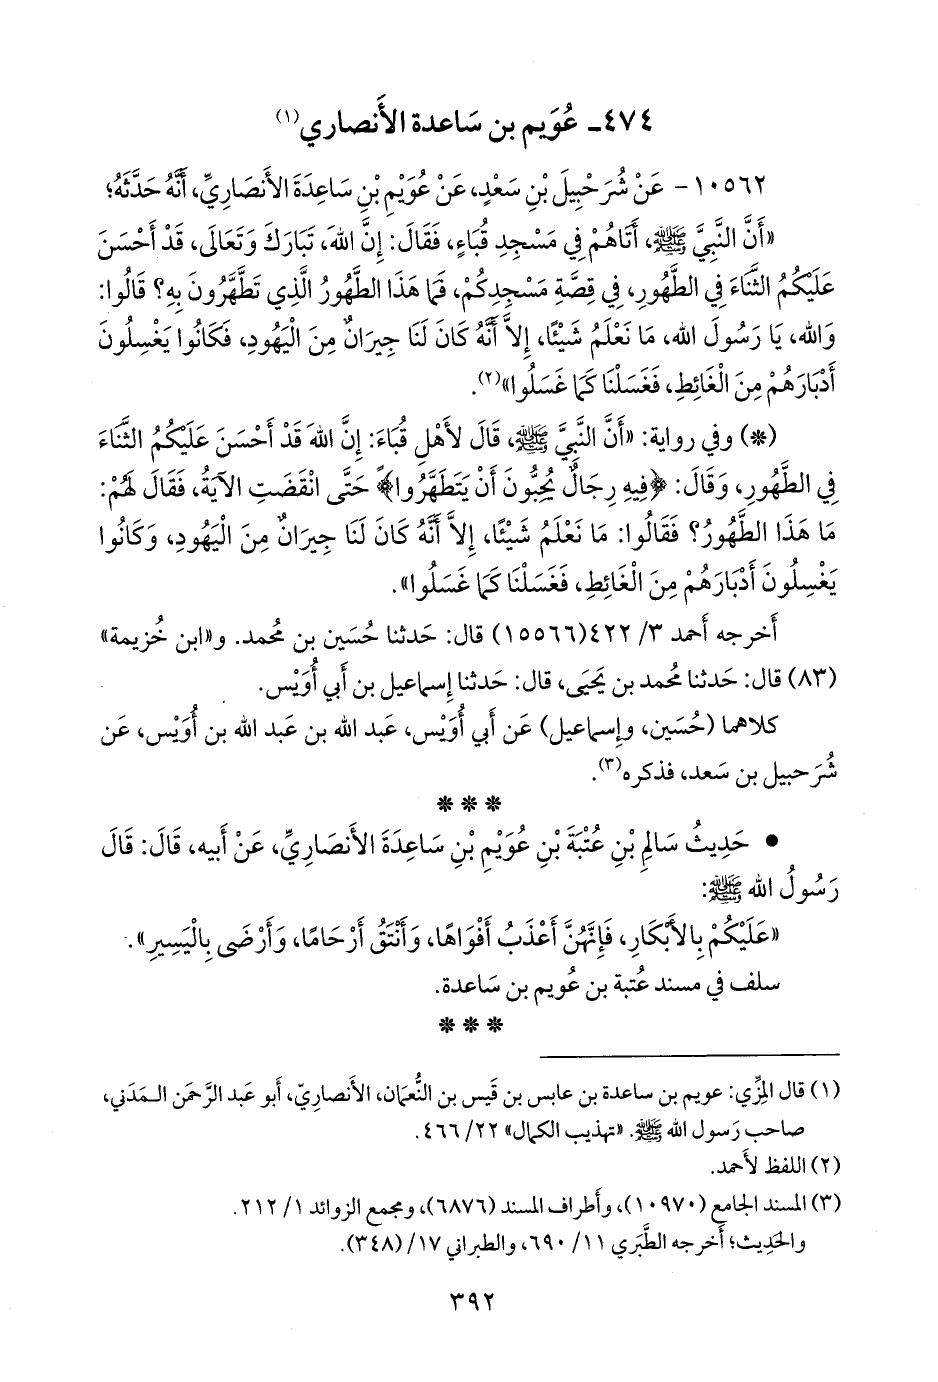 ٤٧٤ـ عُوَيم بن سَاعدة الأَنصاري(١)
١٠٥٦٢ - عَنْ شُرَحْبِيلَ بْنِ سَعْدٍ، عَنْ عُوَيْمِ بْنِ سَاعِدَةَ الأَنْصَارِيِّ، أَنَّهُ حَدَّثَهُ؛
«أَنَّ النَّبِيَّ ﷺ، أَتَاهُمْ فِي مَسْجِدِ قُبَاءٍ، فَقَالَ: إِنَّ اللهَ، تَبَارَكَ وَتَعَالَى، قَدْ أَحْسَنَ
عَلَيْكُمُ الثَّنَاءَ فِي الطَّهُورِ، فِي قِصَّةِ مَسْجِدِكُمْ، فَمَا هَذَا الطَّهُورُ الَّذِي تَطَهَّرُونَ بِهِ؟ قَالُوا:
وَاللهِ، يَا رَسُولَ اللهِ، مَا نَعْلَمُ شَيْئًا، إِلاَّ أَنَّهُ كَانَ لَنَا جِيرَانٌ مِنَ الْيَهُودِ، فَكَانُوا يَغْسِلُونَ
أَدْبَارَهُمْ مِنَ الْغَائِطِ، فَغَسَلْنَا كَمَا غَسَلُوا»(٢).
(*) وفي رواية: «أَنَّ النَّبِيَّ ﷺ، قَالَ لأَهْلِ قُبَاءَ: إِنَّ اللهَ قَدْ أَحْسَنَ عَلَيْكُمُ الثَّنَاءَ
فِي الطَّهُورِ، وَقَالَ: ﴿فِيهِ رِجَالٌ يُحِبُّونَ أَنْ يَتَطَهَّرُوا﴾ حَتَّى انْقَضَتِ الآيَةُ، فَقَالَ لَهُمْ:
مَا هَذَا الطَّهُورُ؟ فَقَالُوا: مَا نَعْلَمُ شَيْئًا، إِلاَّ أَنَّهُ كَانَ لَنَا جِيرَانٌ مِنَ الْيَهُودِ، وَكَانُوا
يَغْسِلُونَ أَدْبَارَهُمْ مِنَ الْغَائِطِ، فَغَسَلْنَا كَمَا غَسَلُوا».
أَخرجه أَحمد ٣/ ٤٢٢(١٥٥٦٦) قال: حَدثنا حُسَين بن مُحمد. و«ابن خُزيمة»
(٨٣) قال: حَدثنا مُحمد بن يَحيَى، قال: حَدثنا إِسماعيل بن أَبي أُوَيْس.
كلاهما (حُسَين، وإِسماعيل) عَن أَبي أُوَيْس، عَبد الله بن عَبد الله بن أُوَيْس، عَن
شُرَحبيل بن سَعد، فذكره(٣).
***
• حَدِيثُ سَالِمِ بْنِ عُتْبَةَ بْنِ عُوَيْمِ بْنِ سَاعِدَةَ الأَنْصَارِيِّ، عَنْ أَبيه، قَالَ: قَالَ
رَسُولُ الله ﷺ:
«عَلَيْكُمْ بِالأَبْكَارِ، فَإِنَّهُنَّ أَعْذَبُ أَفْوَاهًا، وَأَنْتَقُ أَرْحَامًا، وَأَرْضَى بِالْيَسِيرِ».
سلف في مسند عُتبة بن عُويم بن سَاعدة.
***
(١) قال المِزِّي: عويم بن ساعدة بن عابس بن قَيس بن النُّعمان، الأَنصاريّ، أَبو عَبد الرَّحمَن المَدَني،
صاحب رَسول الله ﷺ. «تهذيب الكمال» ٢٢/ ٤٦٦.
(٢) اللفظ لأَحمد.
(٣) المسند الجامع (١٠٩٧٠)، وأَطراف المسند (٦٨٧٦)، ومجمع الزوائد ١/ ٢١٢.
والحَدِيث؛ أَخرجه الطَّبَري ١١/ ٦٩٠، والطبراني ١٧/ (٣٤٨).
٣٩٢